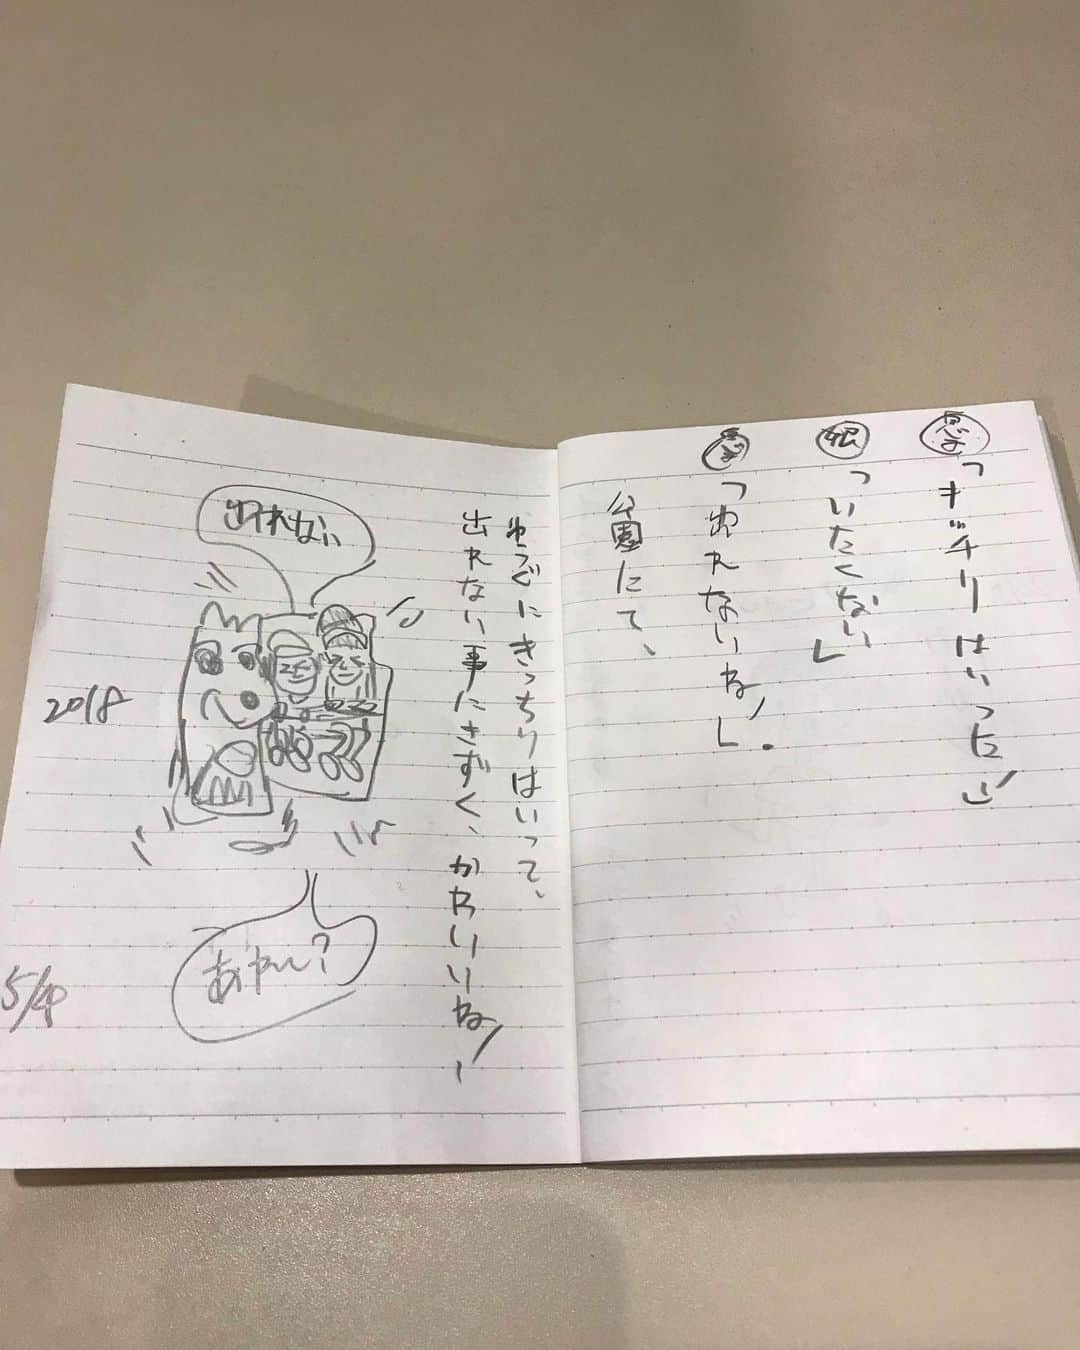 息子
「キッチリはいった!」
娘
「いたくない」
息子
「出れないね!」。
公園にて、
ゆうぐにきっちりはいって、
出れない事にきずく、かわいいね!
出れない
2018
あれ〜?
5/4